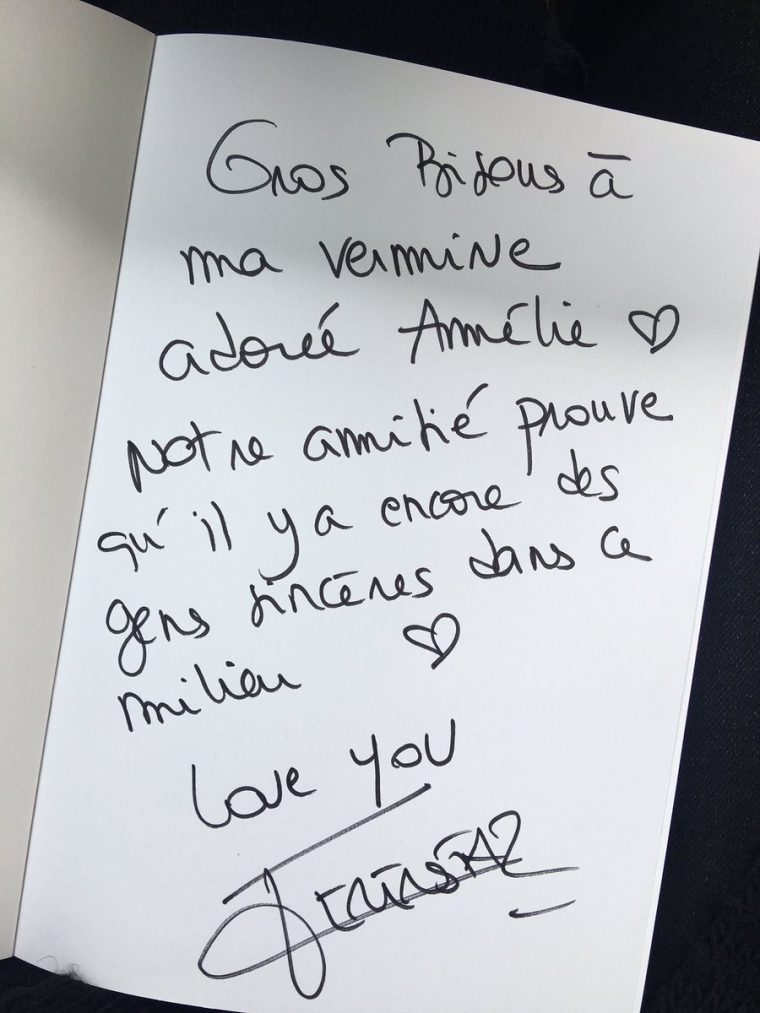 Gros Bisous à
ma vermine
adorée Amélie ♡
Notre amitié prouve
qu'il y a encore des
gens sincères dans ce
milieu ♡
Love you